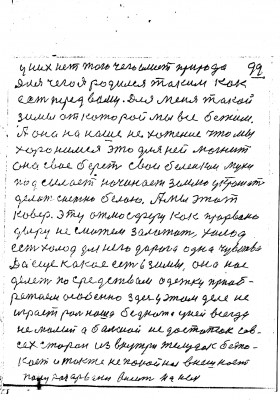 у них нет того чего имеет природа 99
для чего я родился таким как
есть перед вами. Для меня такой
зимы от которой мы все бежим.
А она на наше не хотение что мы
хоронимся это для ней магнит
она свое берет свои беленкие мухи
подсилает начинает землю
делать сильно белою. А мы этот
ковер. Эту атмосферу как прорвана
дверу не сможем залатат. холод
есть холод для него дорога одна чувство
Да еще какое есть в зимы, она нас
делает по средствам одетку приоб-
ретаем особенно здесь в этом деле не
играет рол наша бедност у ней всегда
не малий а балшой не достаток сов-
сех сторон из внутри желудок безпо-
коет и также не покойна внешност